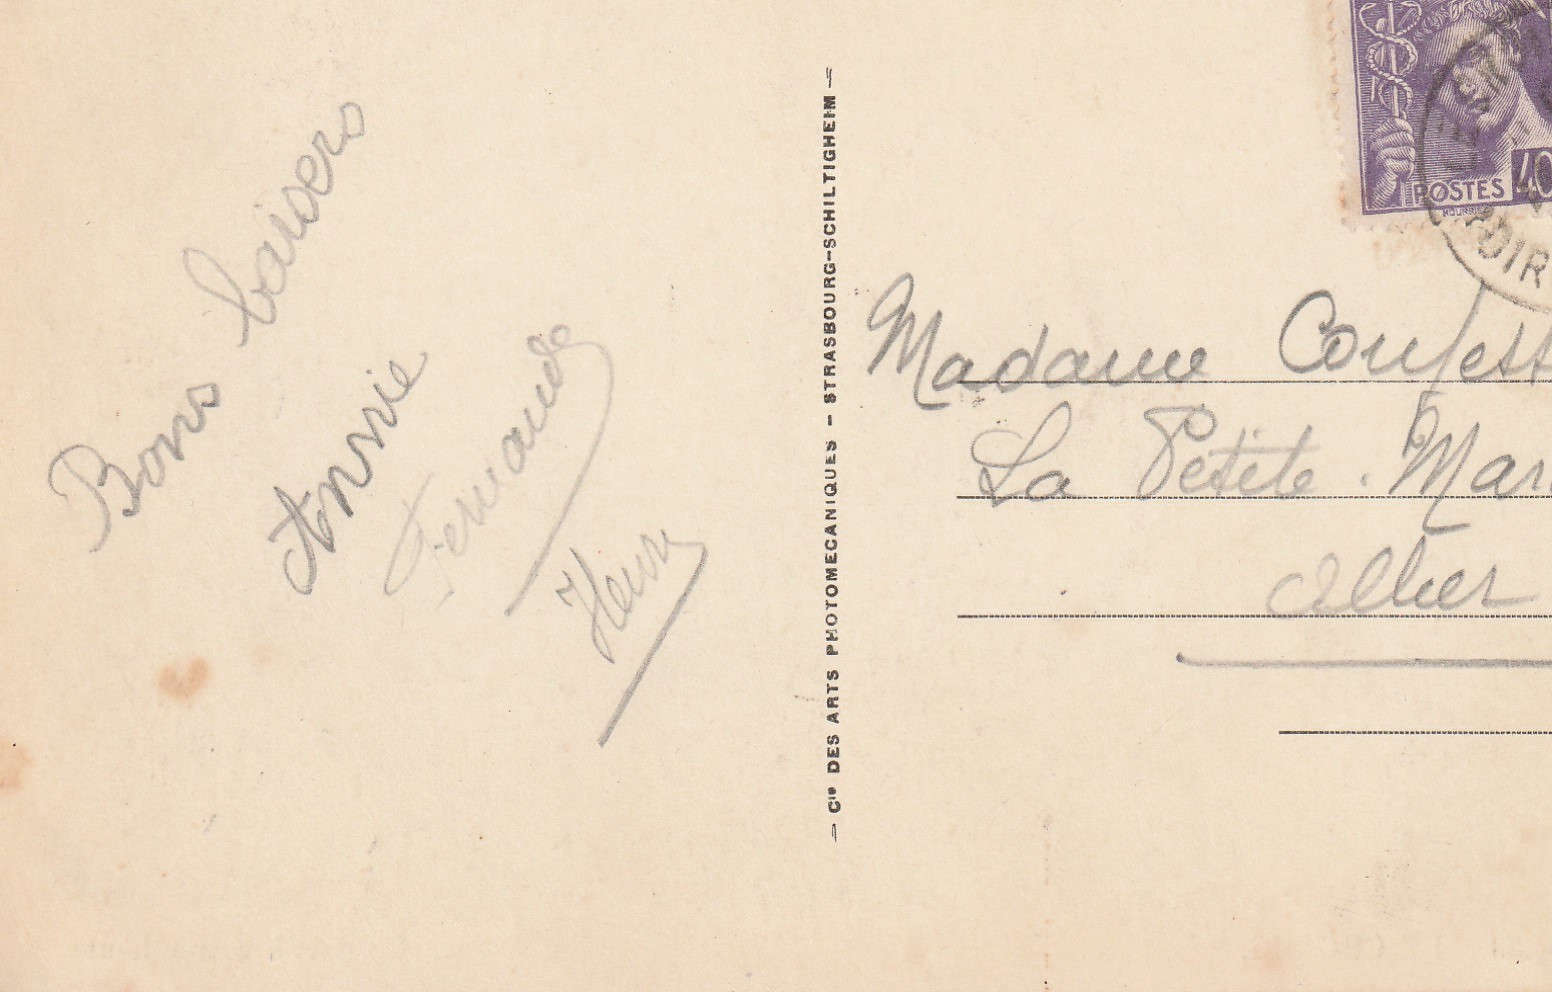 Bons baisers
Annie
Fernande
Henri
— Cie DES ARTS PHOTOMECANIQUES — STRASBOURG-SCHILTIGHEIM —
POSTES 40
Madame
La Petite Mar
Allier